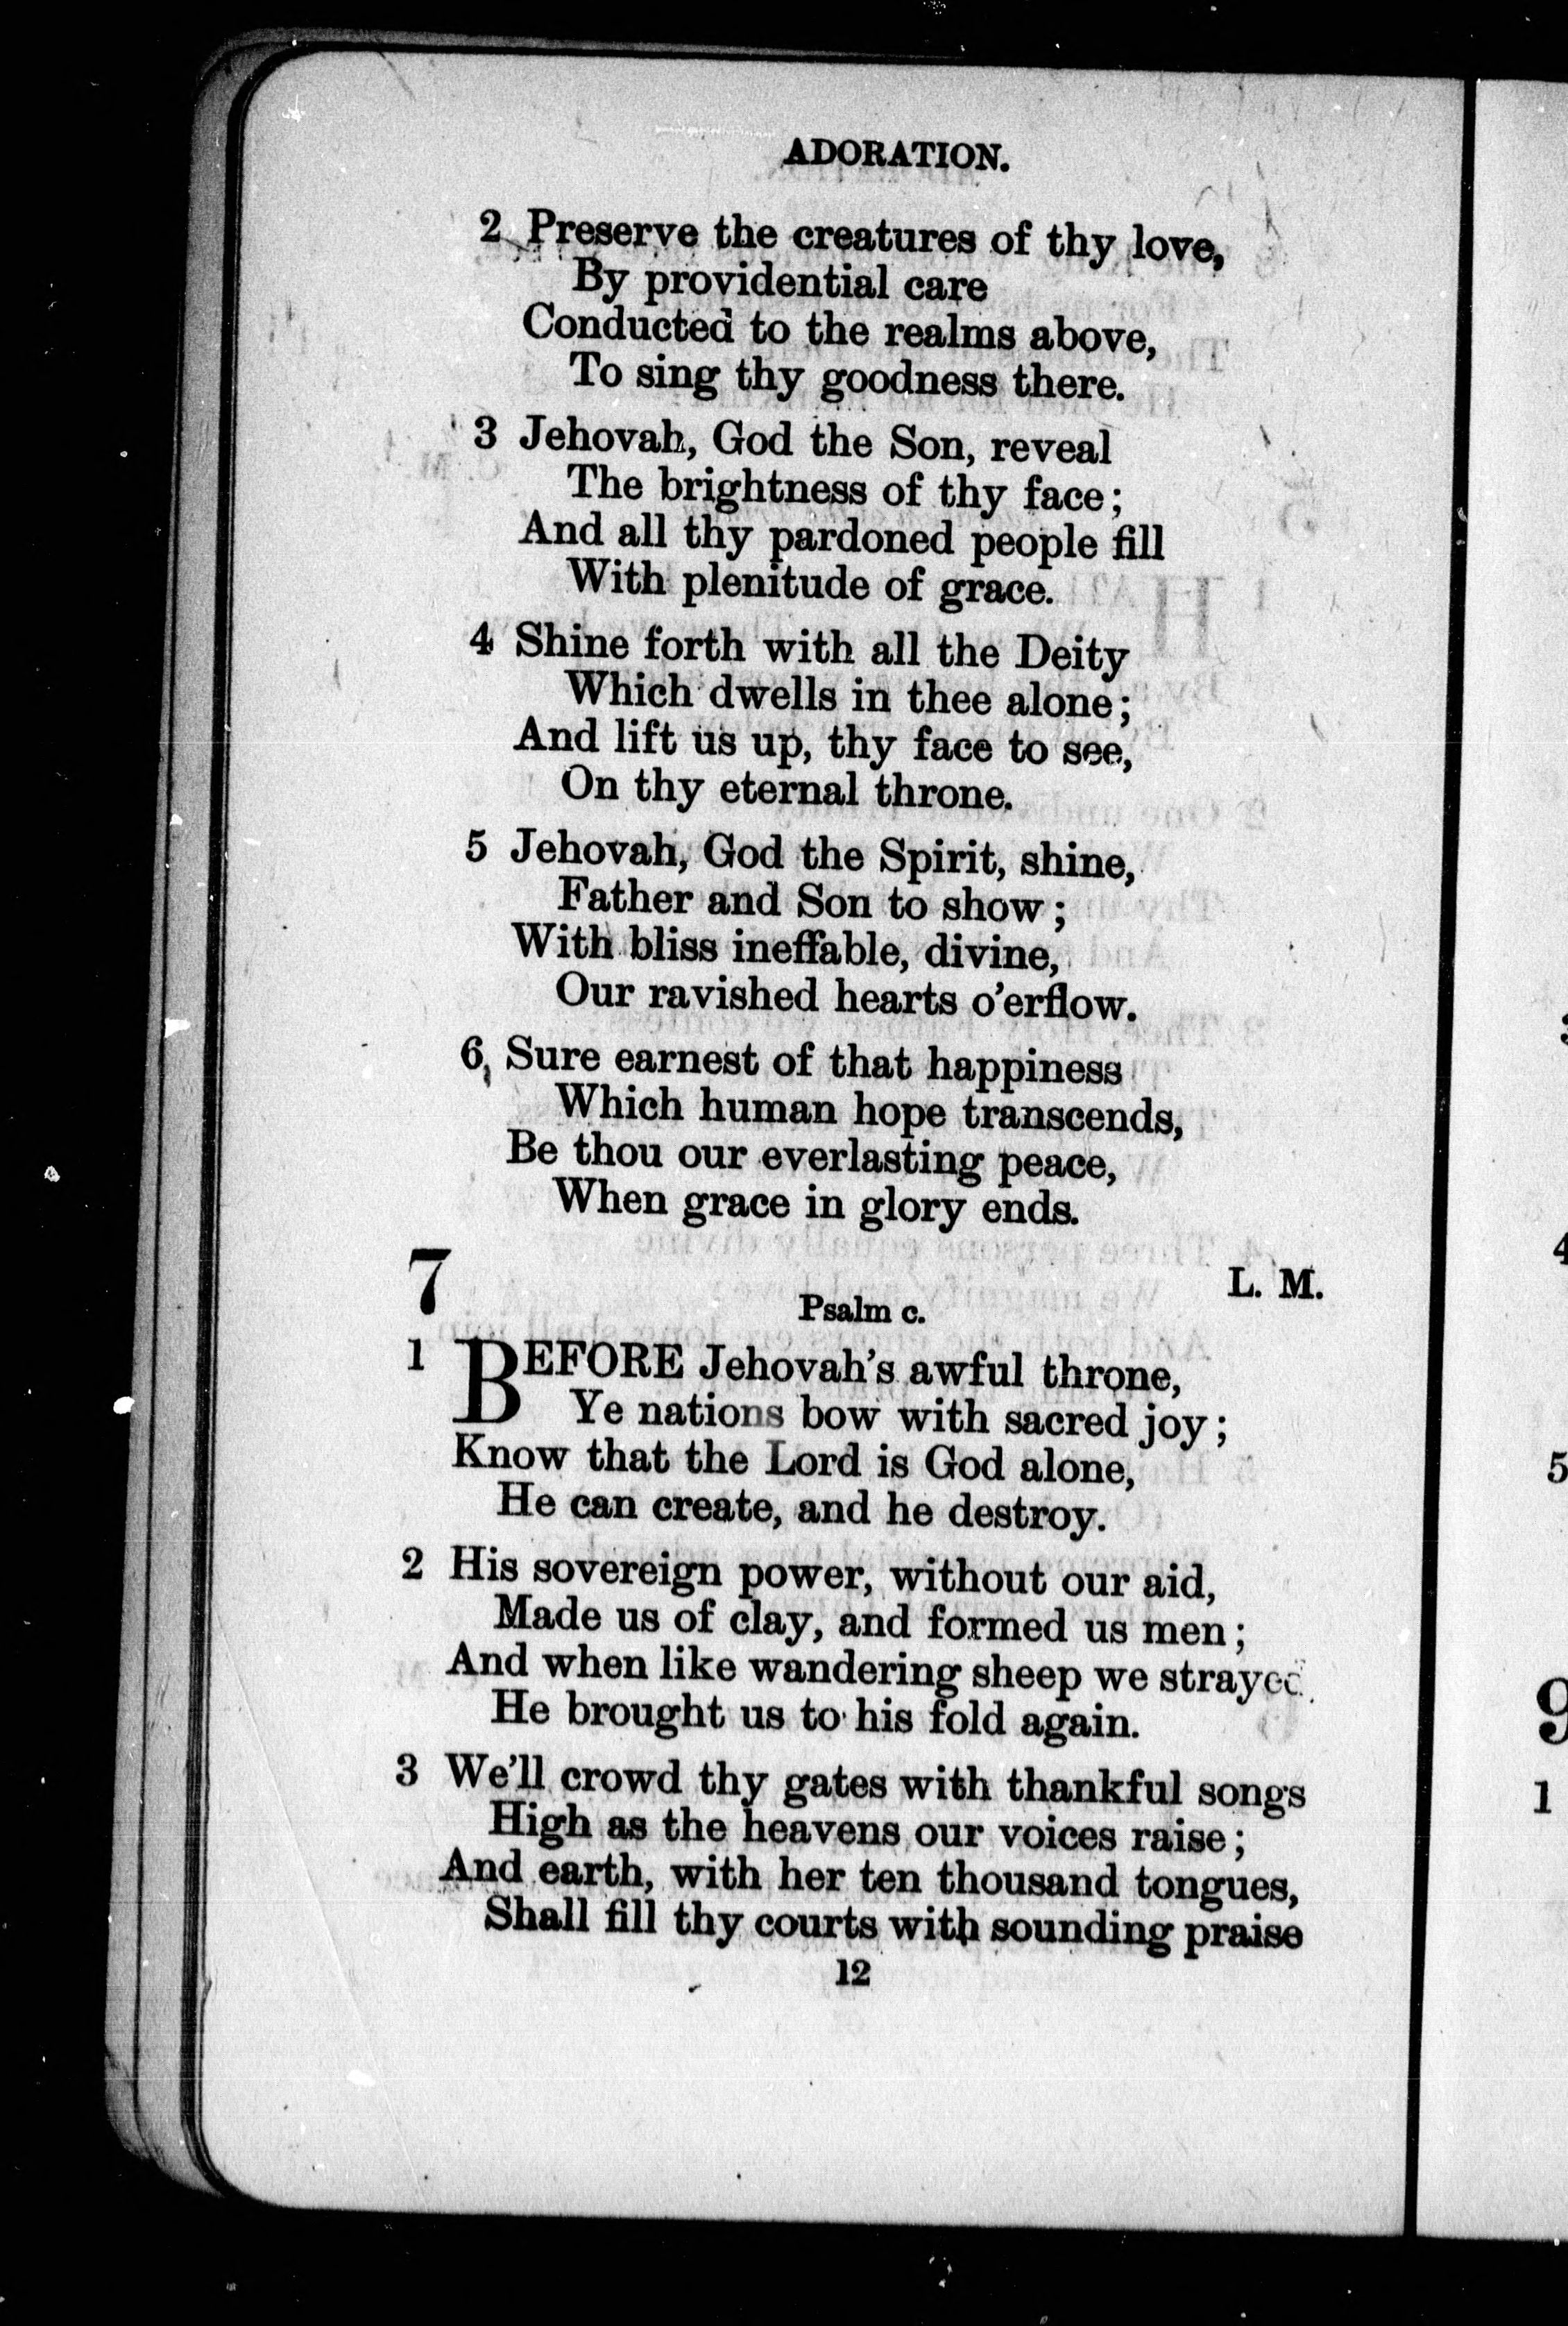 ADORATION.
2 Preserve the creatures of thy love,
By providential care
Conducted to the realms above,
To sing thy goodness there.
3 Jehovah, God the Son, reveal
The brightness of thy face;
And all thy pardoned people fill
With plenitude of grace.
4 Shine forth with all the Deity
Which dwells in thee alone;
And lift us up, thy face to see,
On thy eternal throne.
5 Jehovah, God the Spirit, shine,
Father and Son to show;
With bliss ineffable, divine,
Our ravished hearts o'erflow.
6 Sure earnest of that happiness
Which human hope transcends,
Be thou our everlasting peace,
When grace in glory ends.
7
L. M.
Psalm c.
1 BEFORE Jehovah's awful throne,
Ye nations bow with sacred joy;
Know that the Lord is God alone,
He can create, and he destroy.
2 His sovereign power, without our aid,
Made us of clay, and formed us men;
And when like wandering sheep we strayed
He brought us to his fold again.
3 We'll crowd thy gates with thankful songs
High as the heavens our voices raise;
And earth, with her ten thousand tongues,
Shall fill thy courts with sounding praise
12
5
9
1